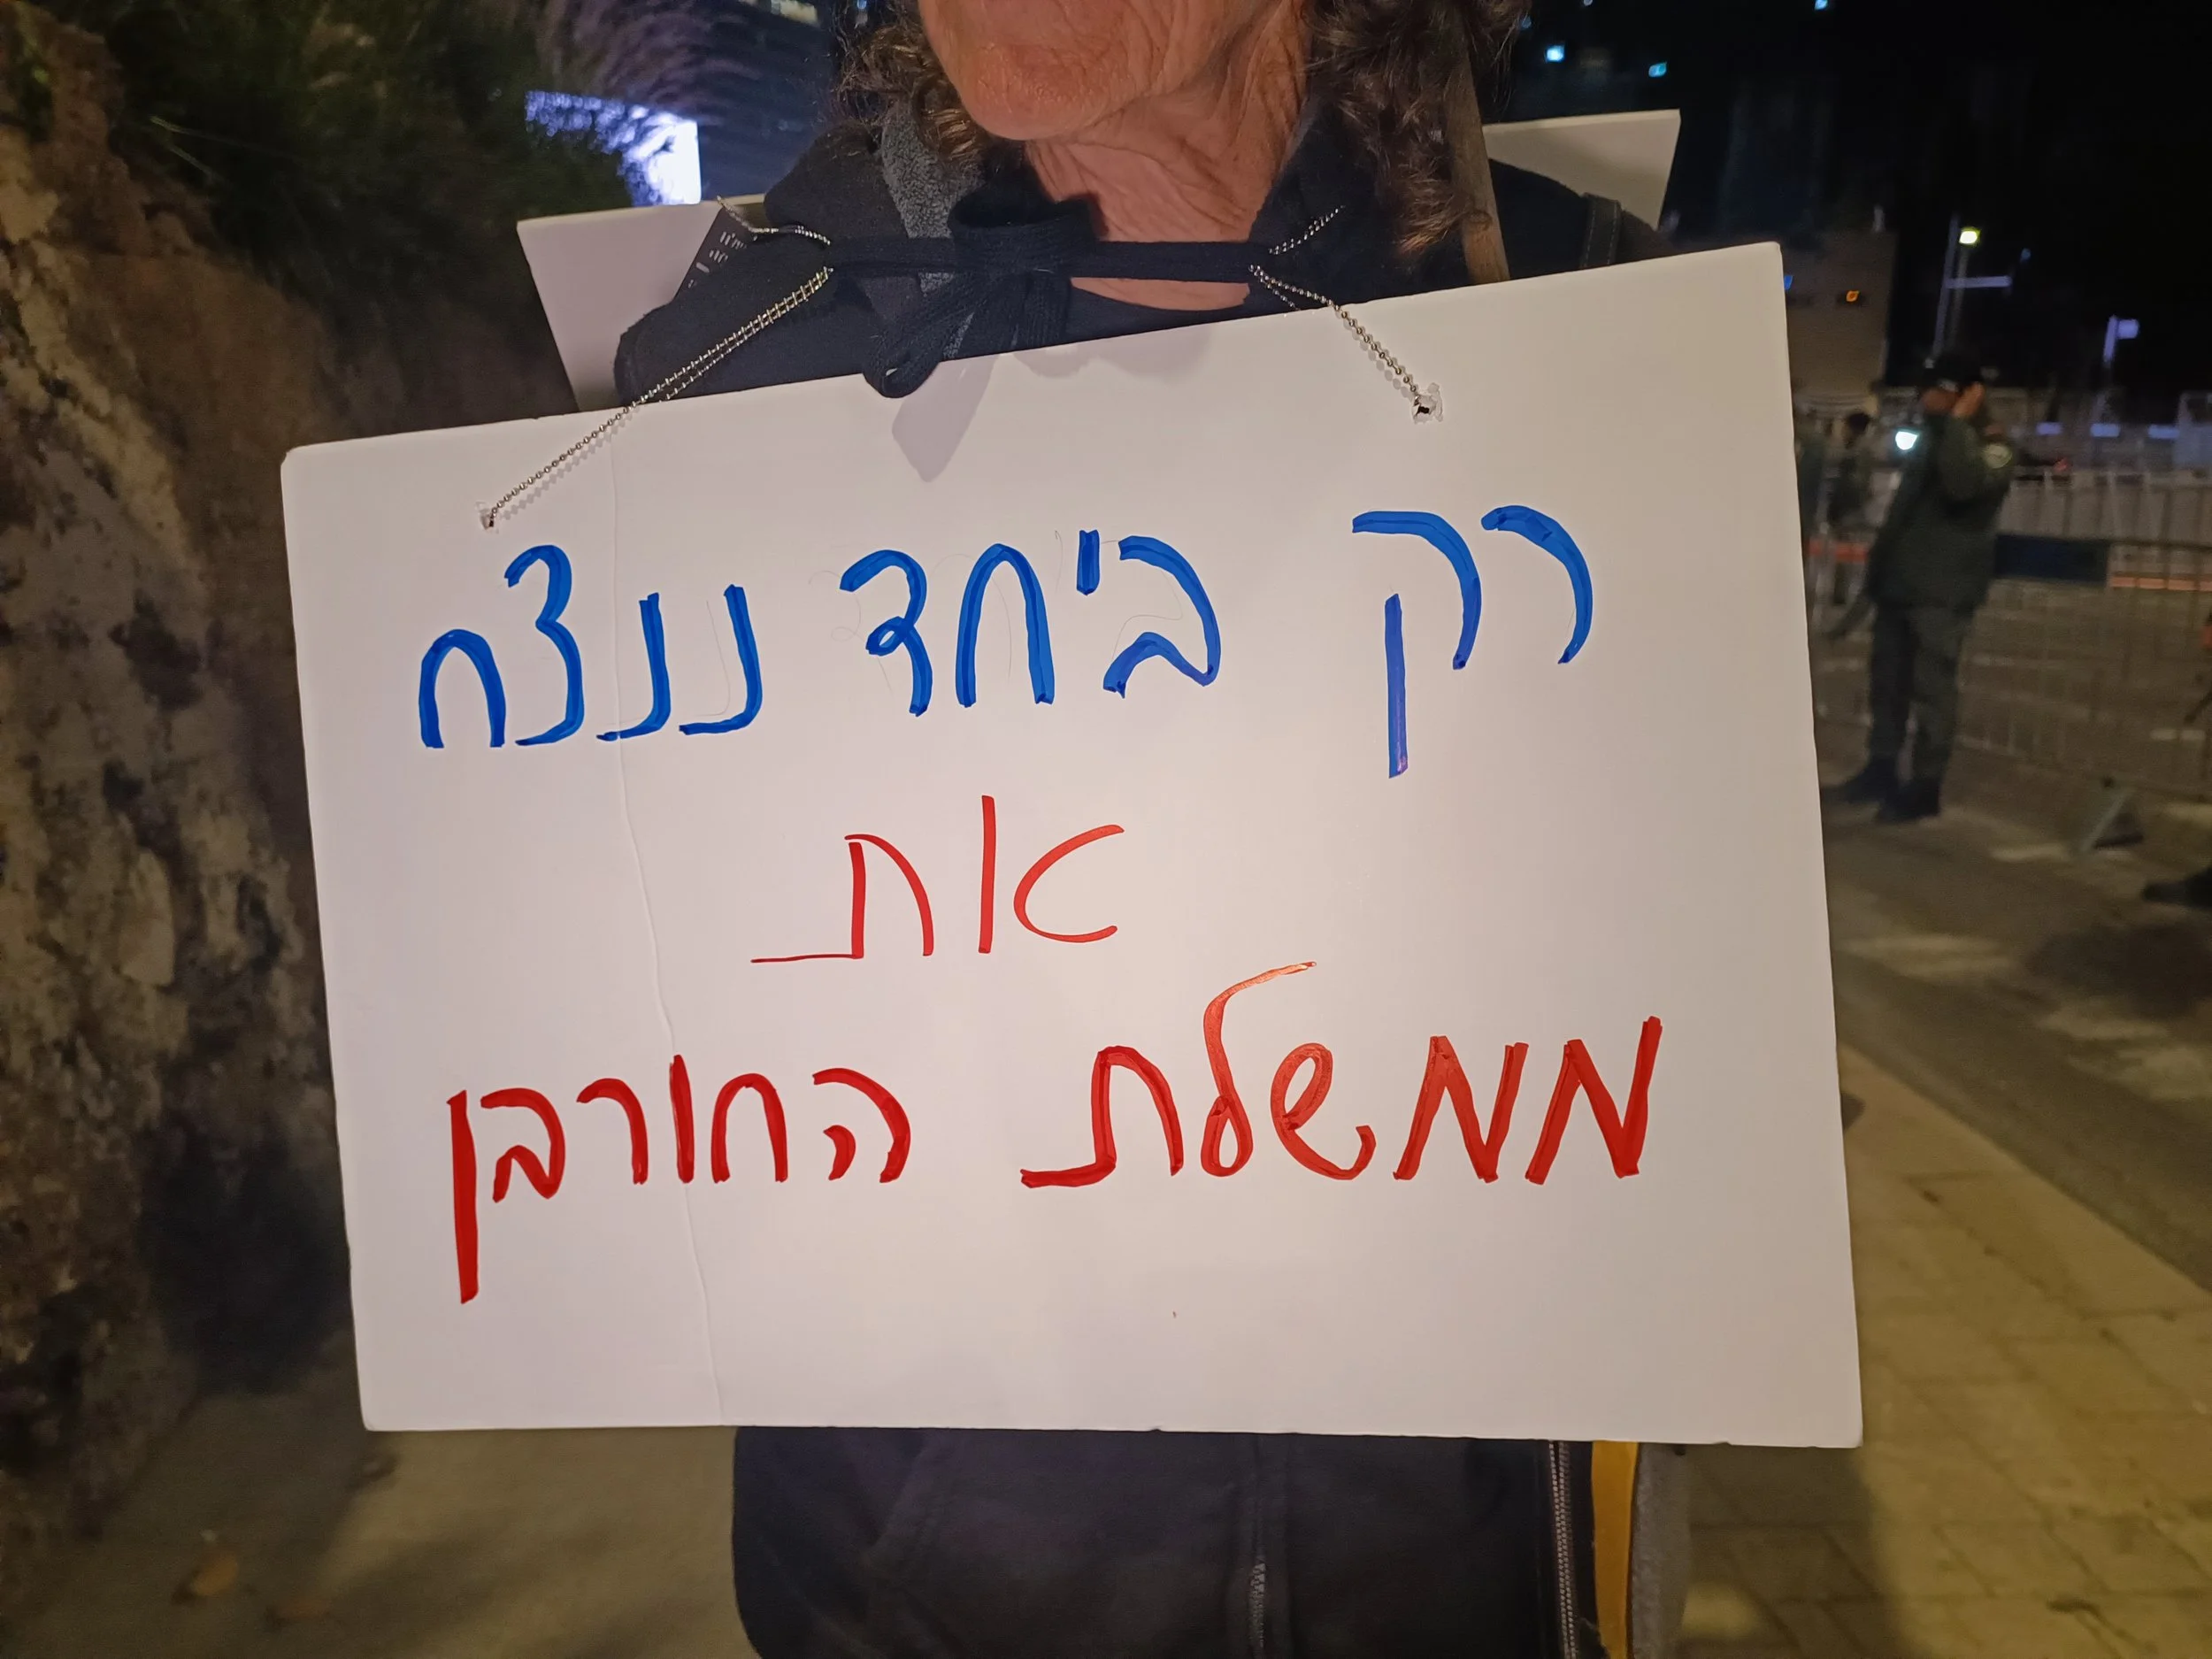 רק ביחד ננצח
את
ממשלת החורבן